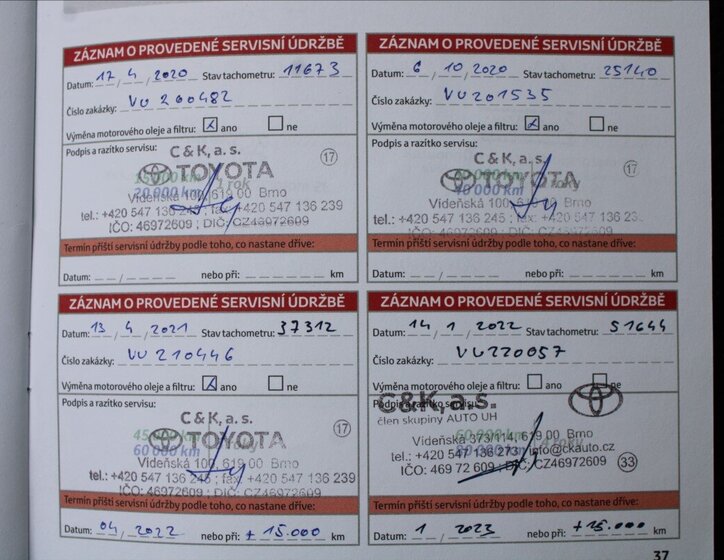 ZÁZNAM O PROVEDENÉ SERVISNÍ ÚDRŽBĚ
Datum: 17 / 4 / 2020 Stav tachometru: 11673
Číslo zakázky: VU 200482
Výměna motorového oleje a filtru: ☒ ano ☐ ne
Podpis a razítko servisu:
C & K, a. s.
17
TOYOTA
20 000 km 1 rok
Vídeňská 100, 619 00 Brno
tel.: +420 547 136 245 ; fax: +420 547 136 239
IČO: 46972609 ; DIČ: CZ46972609
Termín příští servisní údržby podle toho, co nastane dříve:
Datum: / / nebo při: km
ZÁZNAM O PROVEDENÉ SERVISNÍ ÚDRŽBĚ
Datum: 6 / 10 / 2020 Stav tachometru: 25140
Číslo zakázky: VU201535
Výměna motorového oleje a filtru: ☒ ano ☐ ne
Podpis a razítko servisu:
C & K, a. s.
17
TOYOTA
km
Vídeňská 100, Brno
tel.: +420 547 136 245 ; fax: +420 547 136
IČO: 46972609 ; DIČ: CZ46972609
Termín příští servisní údržby podle toho, co nastane dříve:
Datum: / / nebo při: km
ZÁZNAM O PROVEDENÉ SERVISNÍ ÚDRŽBĚ
Datum: 13 / 4 / 2021 Stav tachometru: 37312
Číslo zakázky: VU 210446
Výměna motorového oleje a filtru: ☒ ano ☐ ne
Podpis a razítko servisu:
C & K, a. s.
17
TOYOTA
60 000 km
Vídeňská 100, 619 00 Brno
tel.: +420 547 136 245 ; fax: +420 547 136 239
IČO: 46972609 ; DIČ: CZ46972609
Termín příští servisní údržby podle toho, co nastane dříve:
Datum: 04 / 2022 nebo při: + 15.000 km
ZÁZNAM O PROVEDENÉ SERVISNÍ ÚDRŽBĚ
Datum: 14 / 1 / 2022 Stav tachometru: 51644
Číslo zakázky: VU220057
Výměna motorového oleje a filtru: ☐ ano ☐ ne
Podpis a razítko servisu:
C&K, a.s.
člen skupiny AUTO UH
Vídeňská 373/114, 619 00 Brno
tel.: +420 547 136 273, info@ckauto.cz
IČO: 469 72 609 ; DIČ: CZ46972609
33
Termín příští servisní údržby podle toho, co nastane dříve:
Datum: 1 / 2023 nebo při: + 15.000 km
37